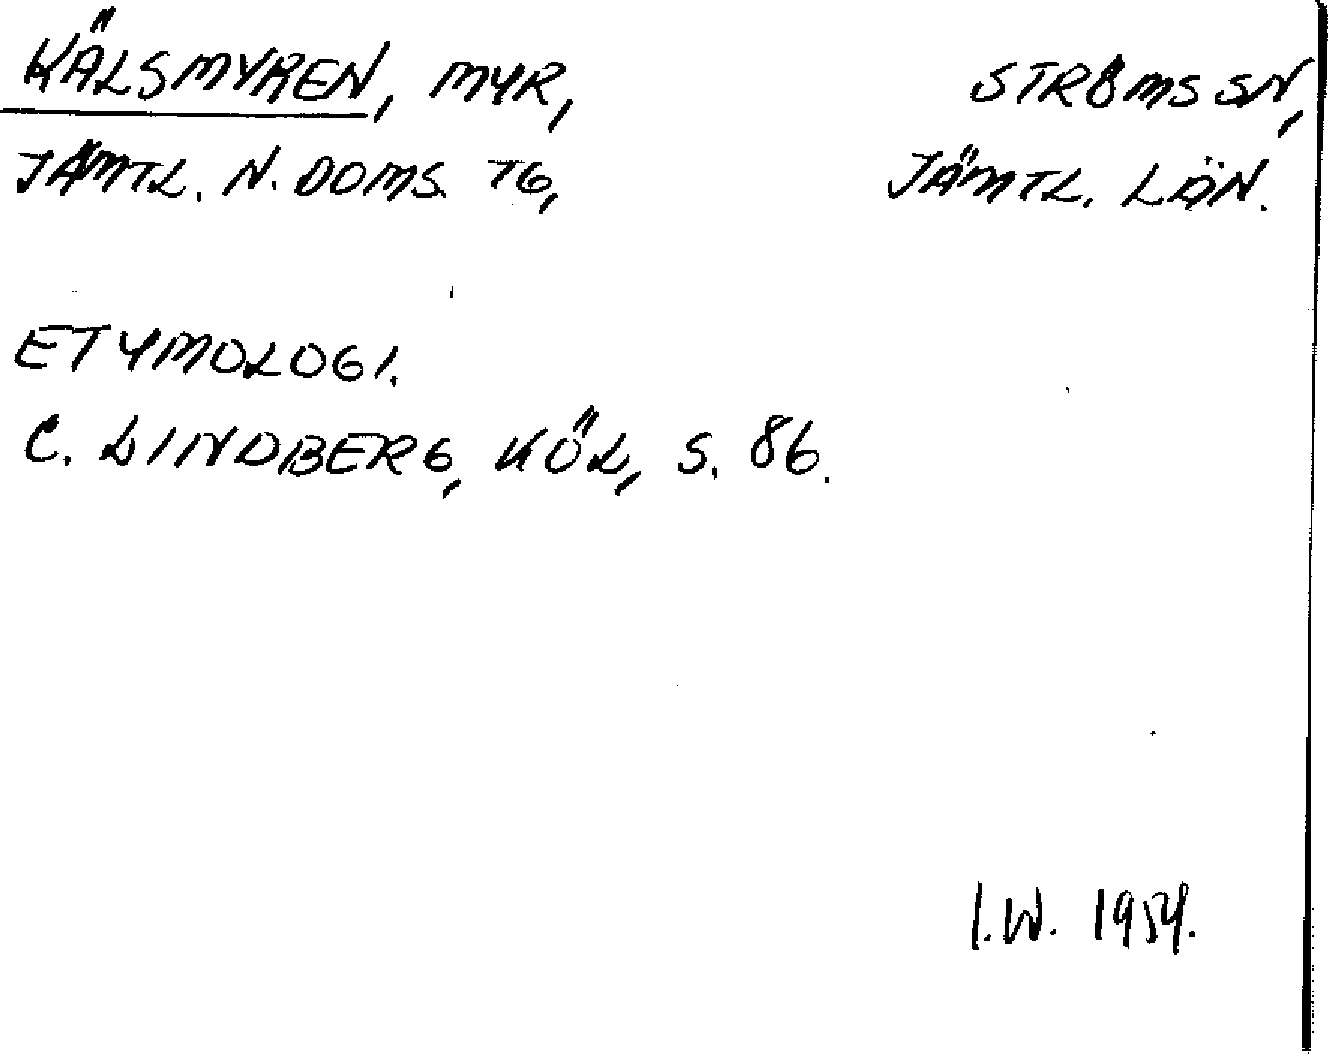 KÄLSMYREN, MYR, STRÖMS SN,
JÄMTL. N. DOMS. TG, JÄMTL. LÄN.
ETYMOLOGI.
C. LINDBERG, KÖL, S. 86.
I.W. 1954.